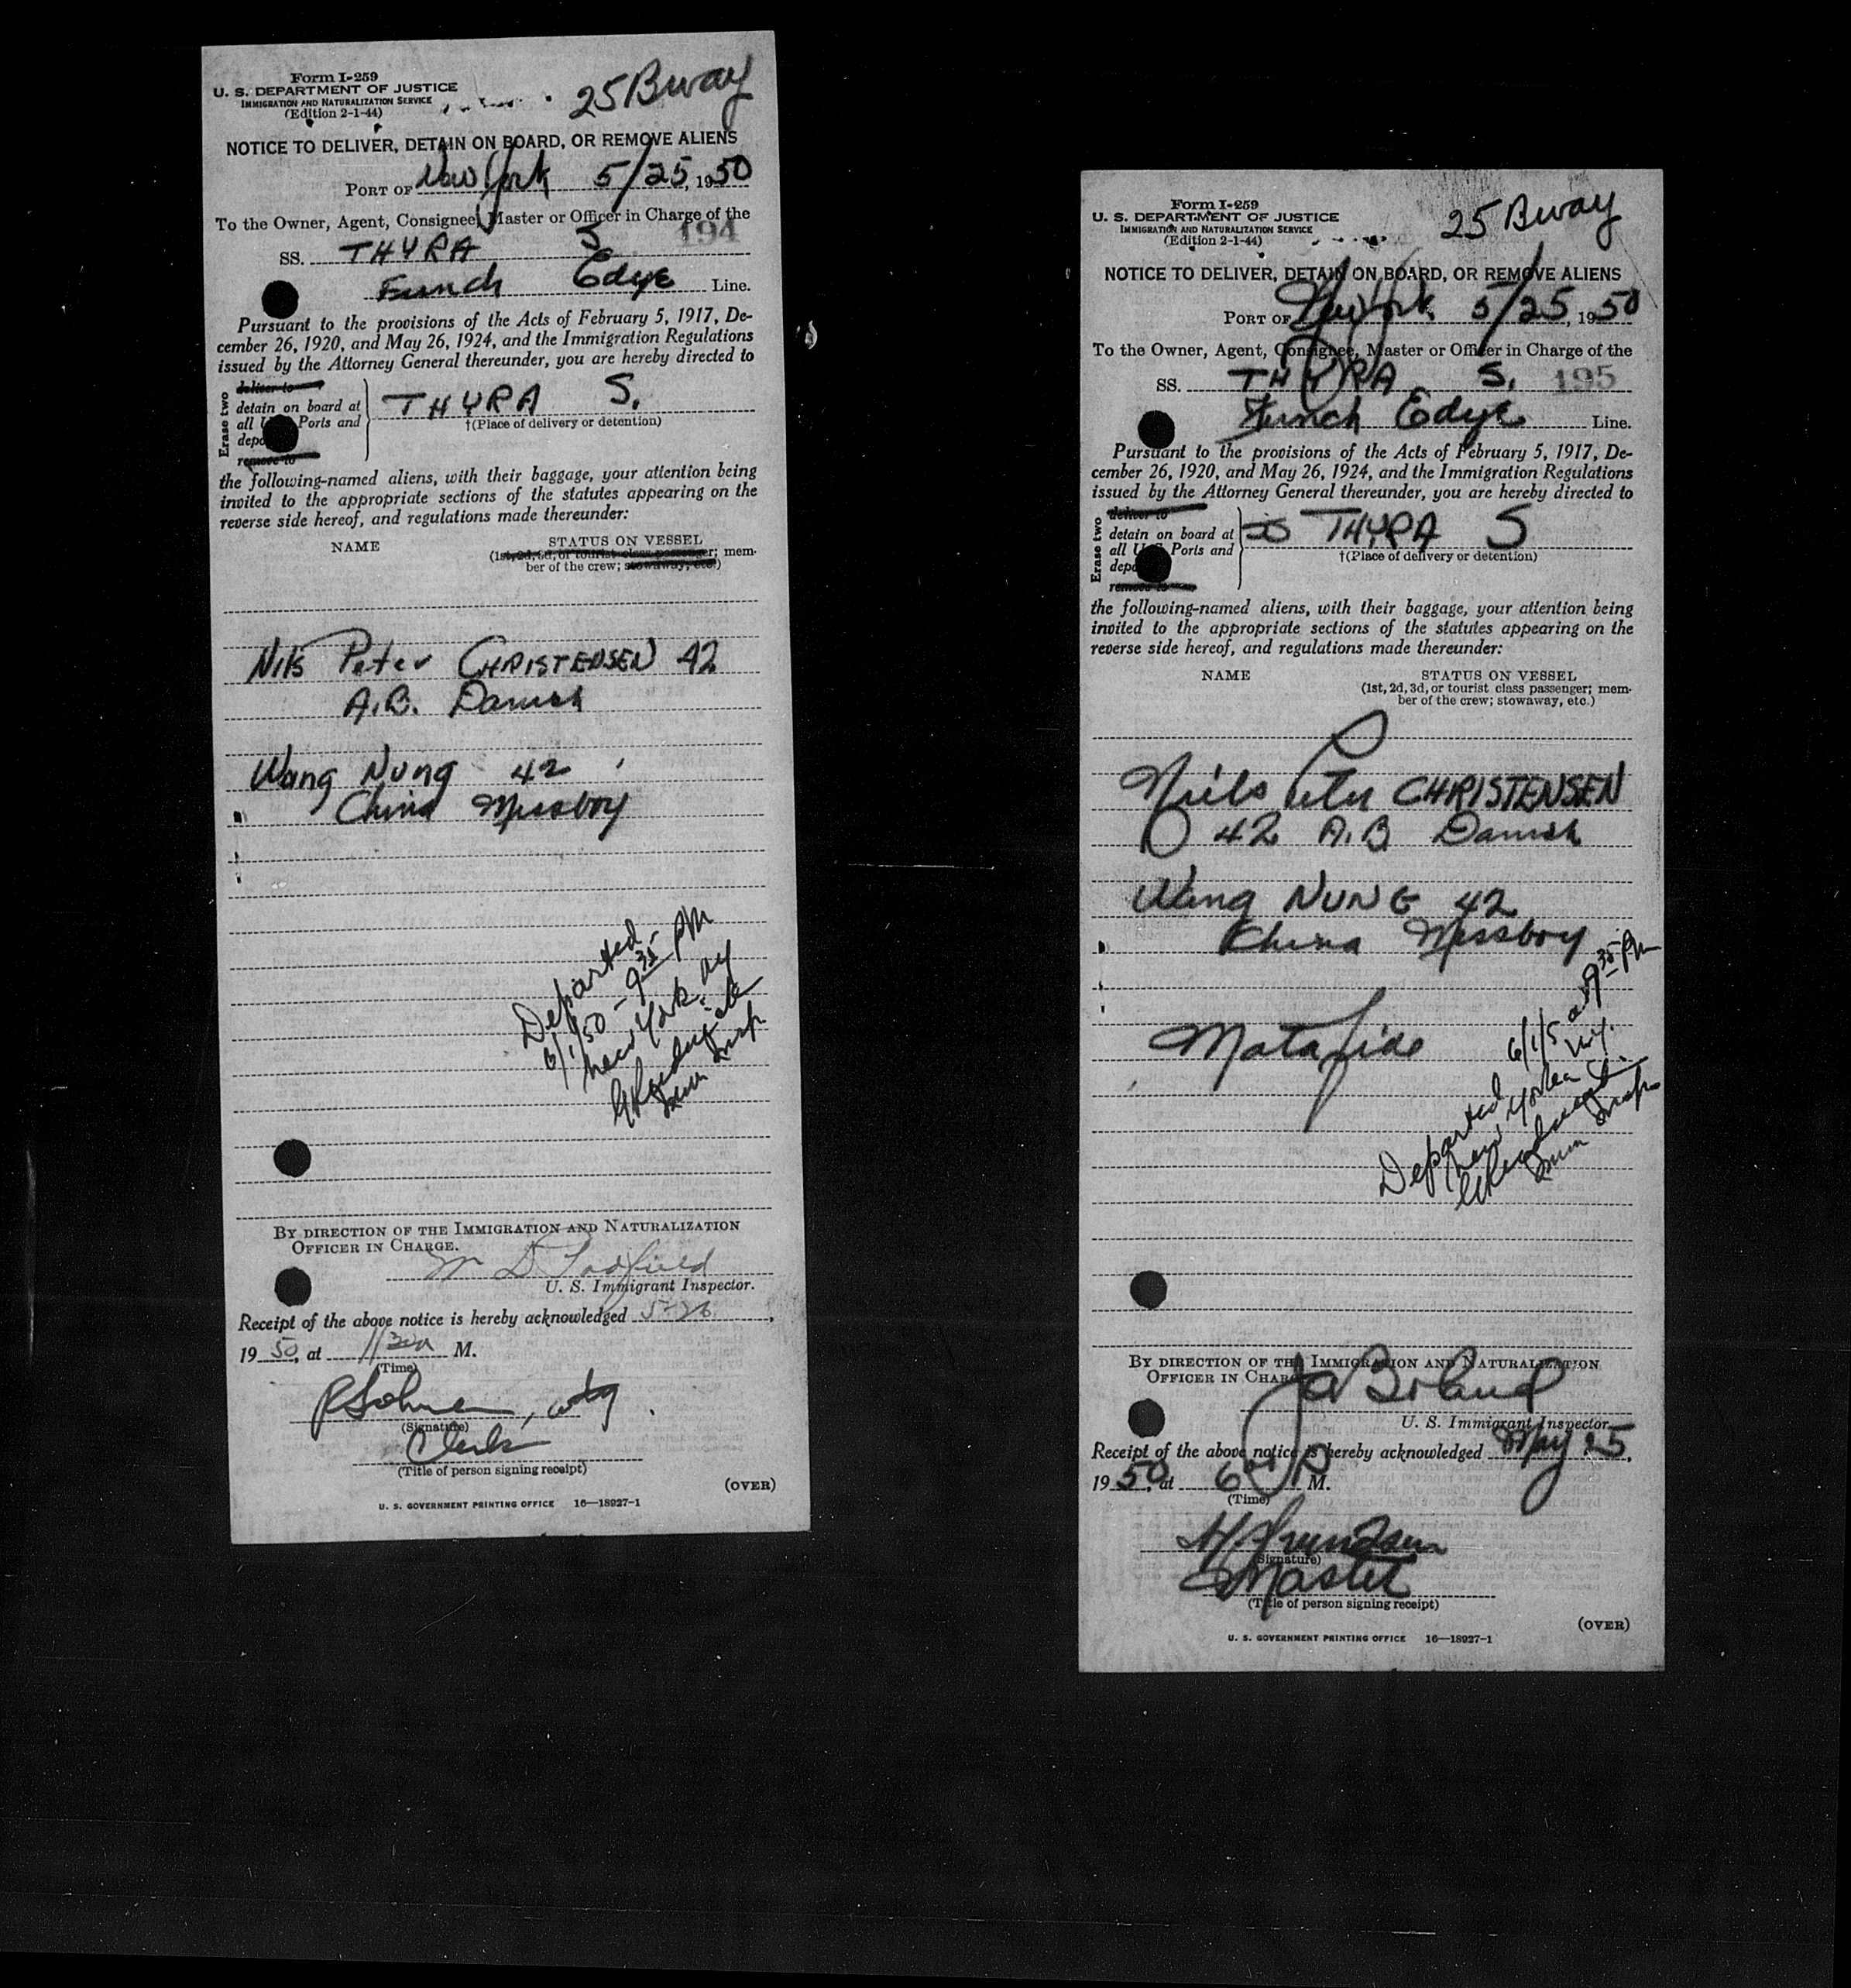 Form I-259
U. S. DEPARTMENT OF JUSTICE
IMMIGRATION AND NATURALIZATION SERVICE
(Edition 2-1-44)
25 Bway
NOTICE TO DELIVER, DETAIN ON BOARD, OR REMOVE ALIENS
PORT OF New York 5/25, 1950
To the Owner, Agent, Consignee, Master or Officer in Charge of the
194
SS. THYRA S
Funch Edye Line.
Pursuant to the provisions of the Acts of February 5, 1917, De-
cember 26, 1920, and May 26, 1924, and the Immigration Regulations
issued by the Attorney General thereunder, you are hereby directed to
Erase two
deliver to
detain on board at
all U Ports and
depo
remove to
THYRA S.
†(Place of delivery or detention)
the following-named aliens, with their baggage, your attention being
invited to the appropriate sections of the statutes appearing on the
reverse side hereof, and regulations made thereunder:
NAME STATUS ON VESSEL
(1st, 2d, 3d, or tourist class passenger; mem-
ber of the crew; stowaway, etc.)
Nils Peter CHRISTENSEN 42
A.B. Danish
Wang Nung 42
China Messboy
Departed
6/1/50 - 9 35 PM
New York, NY
Imm Insp.
BY DIRECTION OF THE IMMIGRATION AND NATURALIZATION
OFFICER IN CHARGE.
U. S. Immigrant Inspector.
Receipt of the above notice is hereby acknowledged 5-26,
1950, at 11 30 a M.
(Time)
(Signature)
Clerk
(Title of person signing receipt)
(OVER)
U. S. GOVERNMENT PRINTING OFFICE 16—18927-1
Form I-259
U. S. DEPARTMENT OF JUSTICE
IMMIGRATION AND NATURALIZATION SERVICE
(Edition 2-1-44)
25 Bway
NOTICE TO DELIVER, DETAIN ON BOARD, OR REMOVE ALIENS
PORT OF New York 5/25, 1950
To the Owner, Agent, Consignee, Master or Officer in Charge of the
SS. THYRA S. 195
Funch Edye Line.
Pursuant to the provisions of the Acts of February 5, 1917, De-
cember 26, 1920, and May 26, 1924, and the Immigration Regulations
issued by the Attorney General thereunder, you are hereby directed to
Erase two
deliver to
detain on board at
all U S Ports and
depo
remove to
SS THYRA S
†(Place of delivery or detention)
the following-named aliens, with their baggage, your attention being
invited to the appropriate sections of the statutes appearing on the
reverse side hereof, and regulations made thereunder:
NAME STATUS ON VESSEL
(1st, 2d, 3d, or tourist class passenger; mem-
ber of the crew; stowaway, etc.)
Niels Peter CHRISTENSEN
42 A.B Danish
Wang NUNG 42
China Messboy
Mala fide
Departed 6/1/5 at 9 35 PM
New York N.Y.
Imm Insp
BY DIRECTION OF THE IMMIGRATION AND NATURALIZATION
OFFICER IN CHARGE
U. S. Immigrant Inspector.
Receipt of the above notice is hereby acknowledged May 25,
1950, at 6 P M.
(Time)
(Signature)
Master
(Title of person signing receipt)
(OVER)
U. S. GOVERNMENT PRINTING OFFICE 16—18927-1